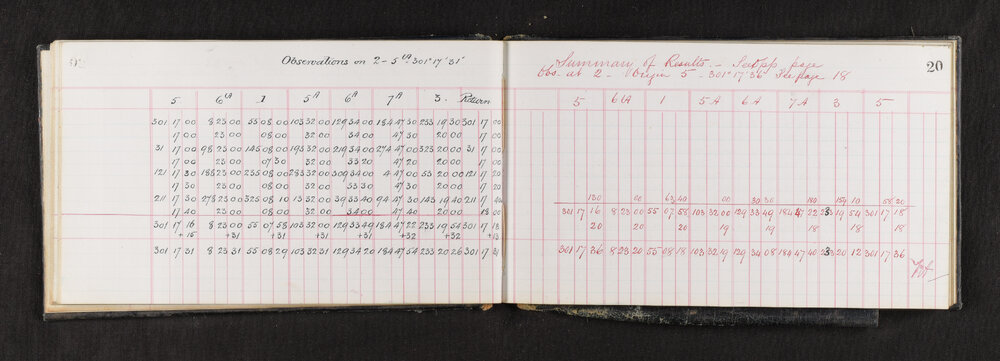 Observations on 2 - 5th 301° 17' 31"
5 6A 1 5A 6A 7A 3 Return
301 17 00 8 23 00 55 08 00 103 32 00 129 34 00 184 47 30 233 19 30 301 17 00
17 00 23 00 08 00 32 00 34 00 47 30 20 00 17 00
31 17 00 98 23 00 145 08 00 193 32 00 219 34 00 274 47 00 323 20 00 31 17 00
17 00 23 00 07 30 32 00 33 20 47 20 20 00 17 00
121 17 30 188 23 00 235 08 00 283 32 00 309 34 00 4 47 00 53 20 00 121 17 20
17 30 23 00 08 00 32 00 33 30 47 30 20 00 17 20
211 17 30 278 23 00 325 08 10 13 32 00 39 33 40 94 47 30 143 19 40 211 17 40
17 40 23 00 08 00 32 00 34 00 47 40 20 00 18 00
301 17 16 8 23 00 55 07 58 103 32 00 129 33 49 184 47 22 233 19 54 301 17 18
+15 +31 +31 +31 +31 +32 +32 +13
301 17 31 8 23 31 55 08 29 103 32 31 129 34 20 184 47 54 233 20 26 301 17 31
20
Summary of Results. - See opp. page
Obs. at 2 - Origin 5 - 301° 17' 36" See page 18
5 6A 1 5A 6A 7A 3 5
130 00 63 40 00 30 30 180 159 10 58 20
301 17 16 8 23 00 55 07 58 103 32 00 129 33 49 184 47 22 233 19 54 301 17 18
20 20 20 19 19 18 18 18
301 17 36 8 23 20 55 08 18 103 32 19 129 34 08 184 47 40 233 20 12 301 17 36